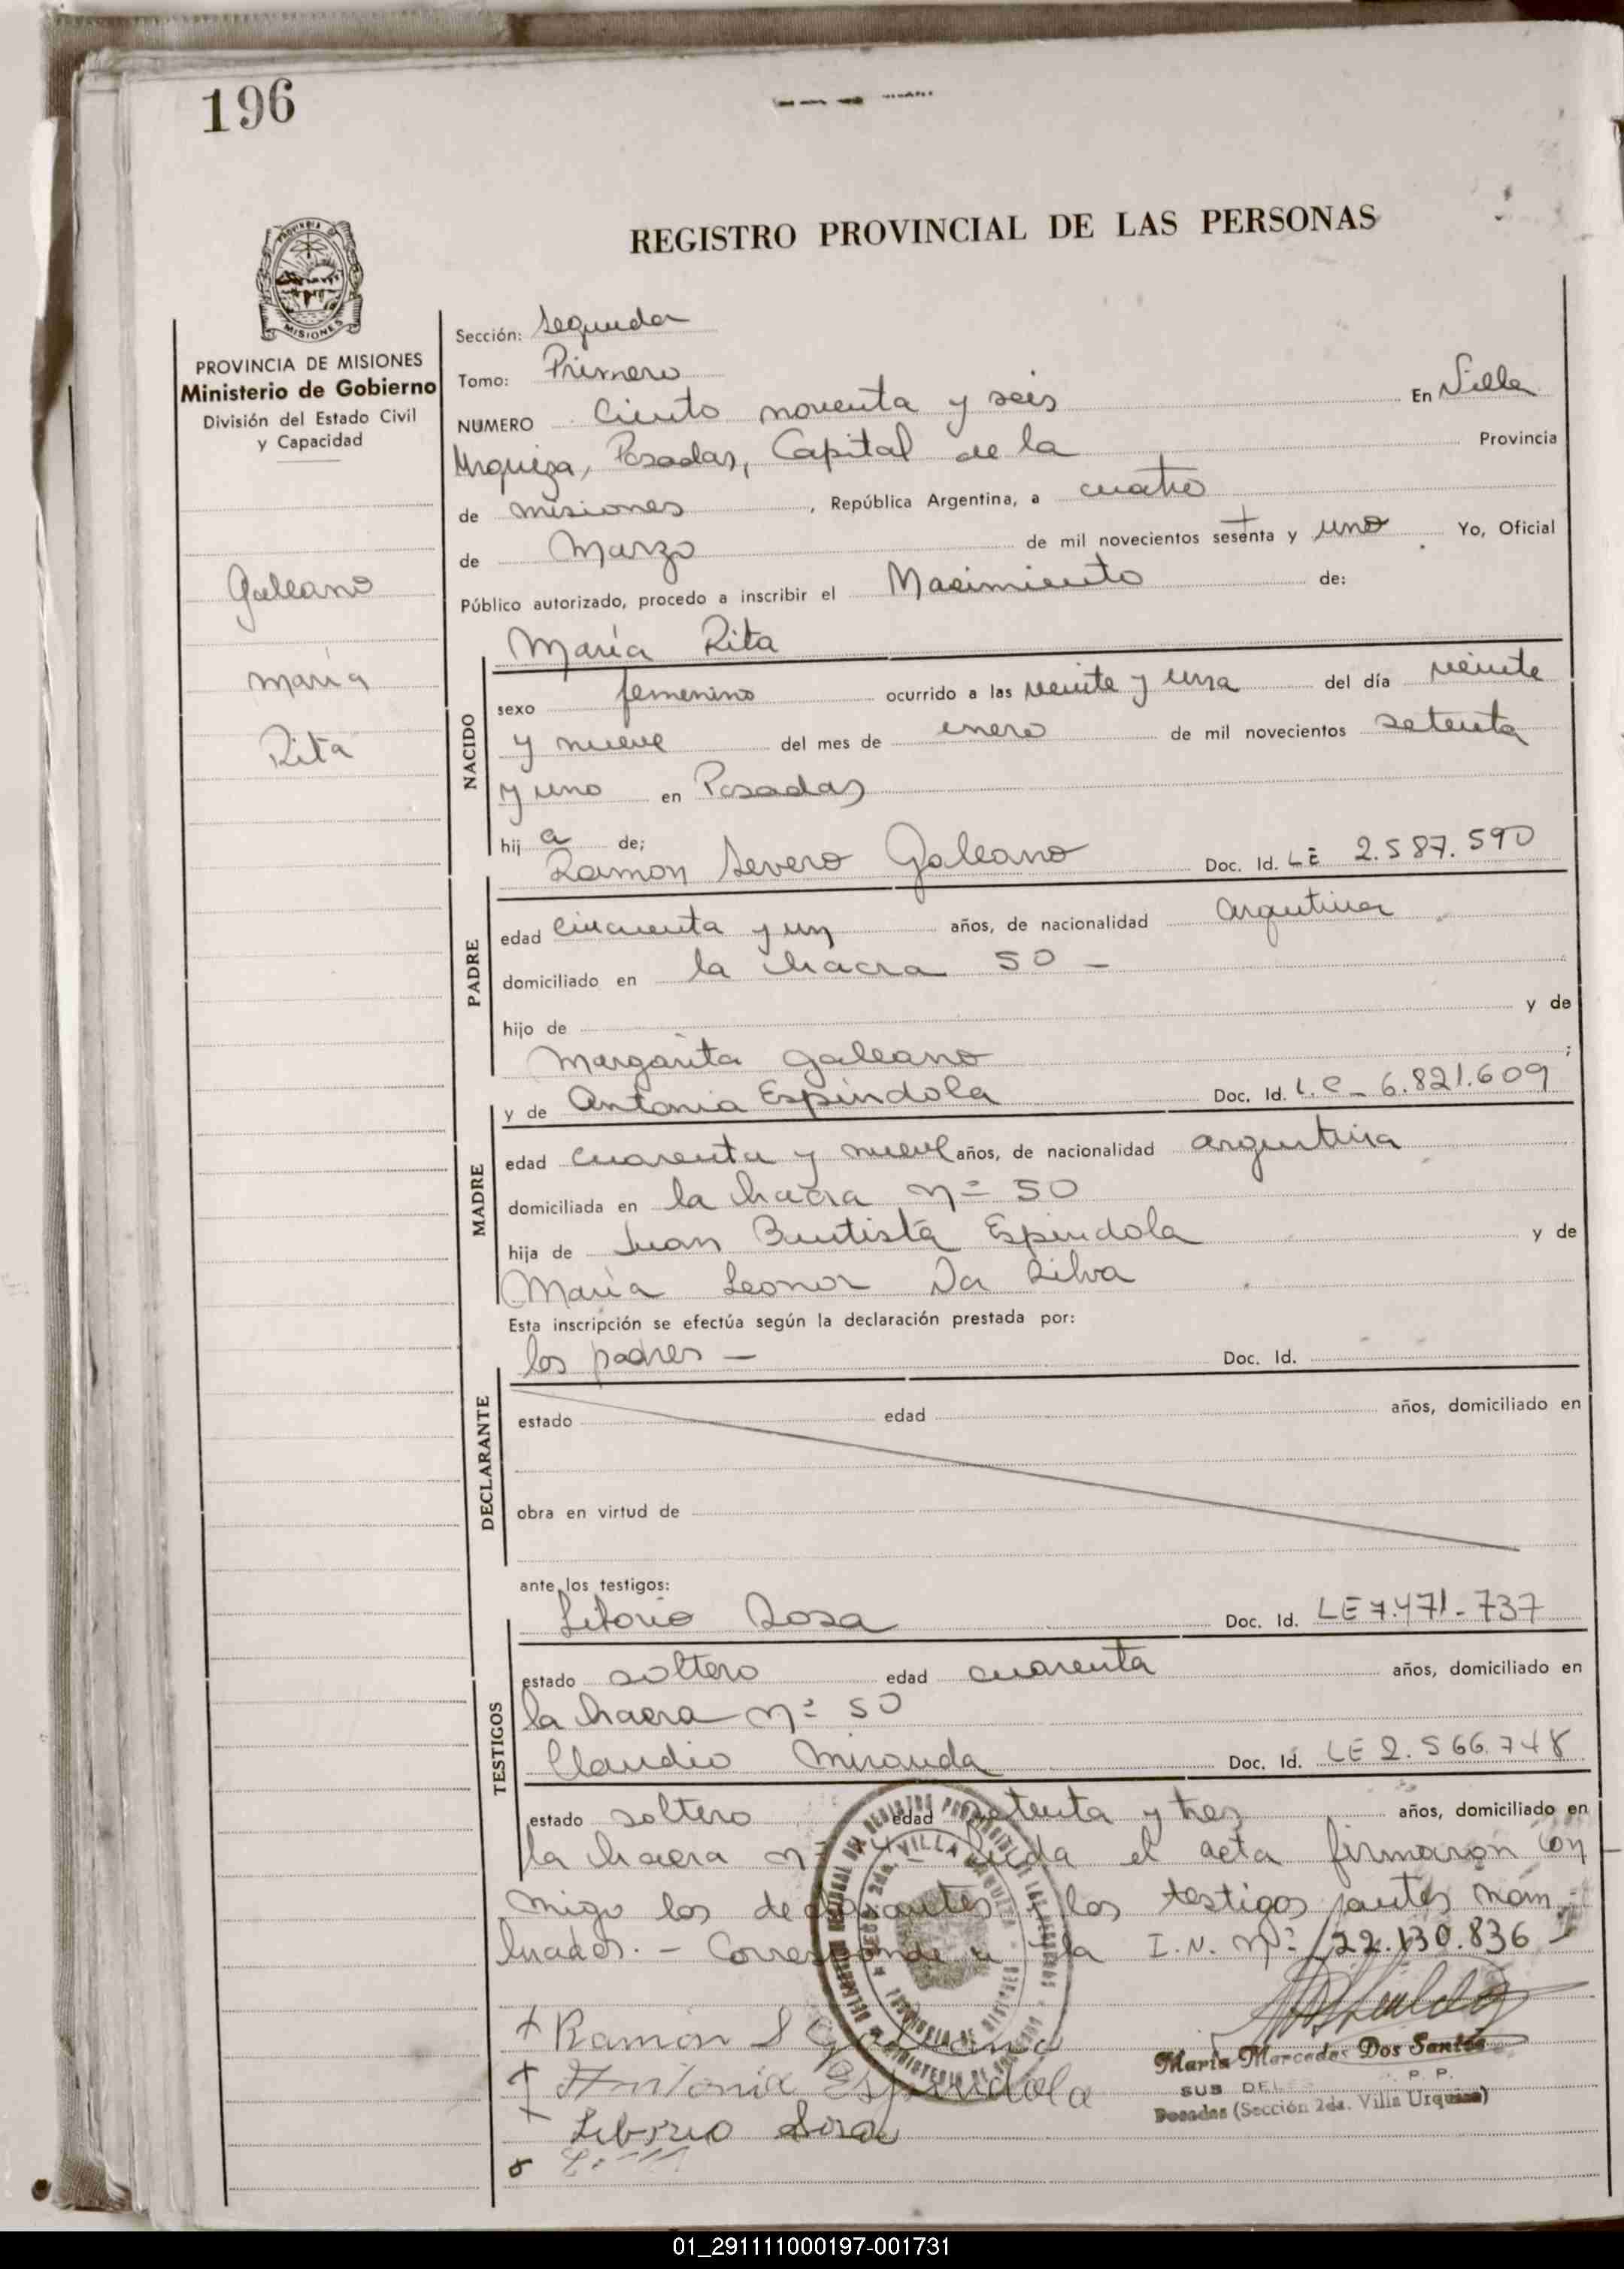 196
REGISTRO PROVINCIAL DE LAS PERSONAS
PROVINCIA DE MISIONES
Ministerio de Gobierno
División del Estado Civil
y Capacidad
Galeano
María
Rita
Sección: Segunda
Tomo: Primero
NUMERO Ciento noventa y seis En Villa
Urquiza, Posadas, Capital de la Provincia
de misiones, República Argentina, a cuatro
de Marzo de mil novecientos sesenta y uno Yo, Oficial
Público autorizado, procedo a inscribir el Nacimiento de:
María Rita
NACIDO
sexo femenino ocurrido a las veinte y una del día veinte
y nueve del mes de enero de mil novecientos setenta
y uno en Posadas
hij a de;
Ramon Severo Galeano Doc. Id. LE 2.587.590
PADRE
edad cincuenta y un años, de nacionalidad argentina
domiciliado en la chacra 50 -
hijo de y de
Margarita Galeano ;
y de Antonia Espindola Doc. Id. L.C - 6.821.609
MADRE
edad cuarenta y nueve años, de nacionalidad argentina
domiciliada en la chacra nº 50
hija de Juan Bautista Espindola y de
María Leonor Da Silva
Esta inscripción se efectúa según la declaración prestada por:
los padres - Doc. Id.
DECLARANTE
estado edad años, domiciliado en
obra en virtud de
ante los testigos:
Sosa Doc. Id. LE 7.471-737
TESTIGOS
estado soltero edad cuarenta años, domiciliado en
la chacra nº 50
Claudio Miranda Doc. Id. LE 2.566.748
estado soltero edad setenta y tres años, domiciliado en
la chacra nº el acta firmaron con
migo los declarantes y los testigos antes nom
brados. - Corresponde a la I.N. nº 22.130.836
+ Ramón S Galeano
+ Antonia Espindola
+ Sosa
Maria Mercedes Dos Santos
SUB DEL P. P.
Posadas (Sección 2da. Villa Urquiza)
01_291111000197-001731